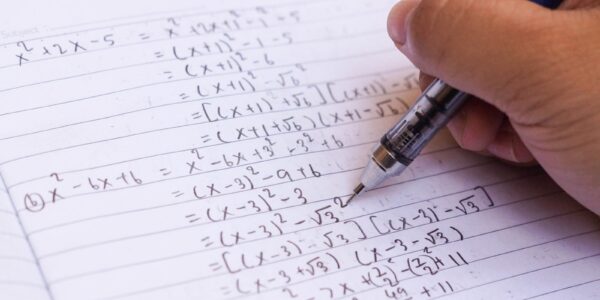 Subject
x² + 2x - 5 = x² + 2x + 1² - 1² - 5
= (x+1)² - 1 - 5
= (x+1)² - 6
= (x+1)² - √6²
= [(x+1) + √6][(x+1) - √6]
= (x+1+√6)(x+1-√6)
(b) x² - 6x + 6 = x² - 6x + 3² - 3² + 6
= (x-3)² - 9 + 6
= (x-3)² - 3
= (x-3)² - √3²
= [(x-3) + √3][(x-3) - √3]
= (x-3+√3)(x-3-√3)
² - 7x + (7/2)² - (7/2)² + 11
49 + 11